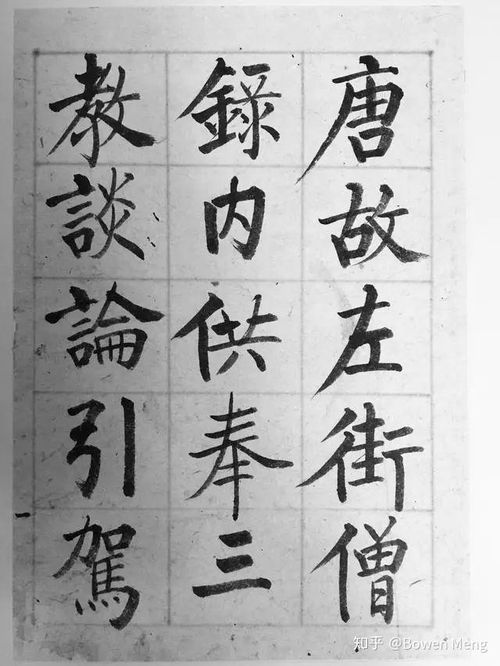 唐故左街僧
錄内供奉三
教談論引駕
知乎 @Bowen Meng